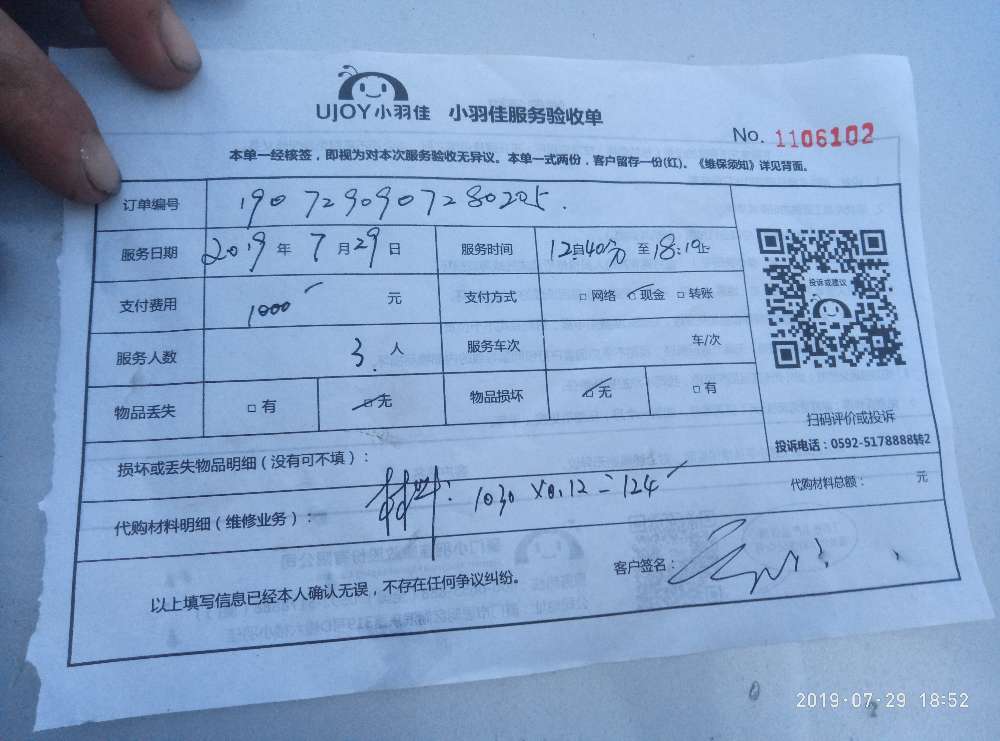 UJOY小羽佳 小羽佳服务验收单
No. 1106102
本单一经核签，即视为对本次服务验收无异议。本单一式两份，客户留存一份(红)。《维保须知》详见背面。
订单编号 1907290907280225.
服务日期 2019 年 7 月 29 日 服务时间 12 40分 至 18:19
投诉或建议
支付费用 1000 元 支付方式 □ 网络 □ 现金 □ 转账
服务人数 3. 人 服务车次 车/次
物品丢失 □ 有 □ 无 物品损坏 □ 无 □ 有
扫码评价或投诉
投诉电话：0592-5178888转2
损坏或丢失物品明细（没有可不填）：
代购材料明细（维修业务）： 材料: 1030 x0.12=124
代购材料总额： 元
以上填写信息已经本人确认无误，不存在任何争议纠纷。
客户签名：
2019-07-29 18:52